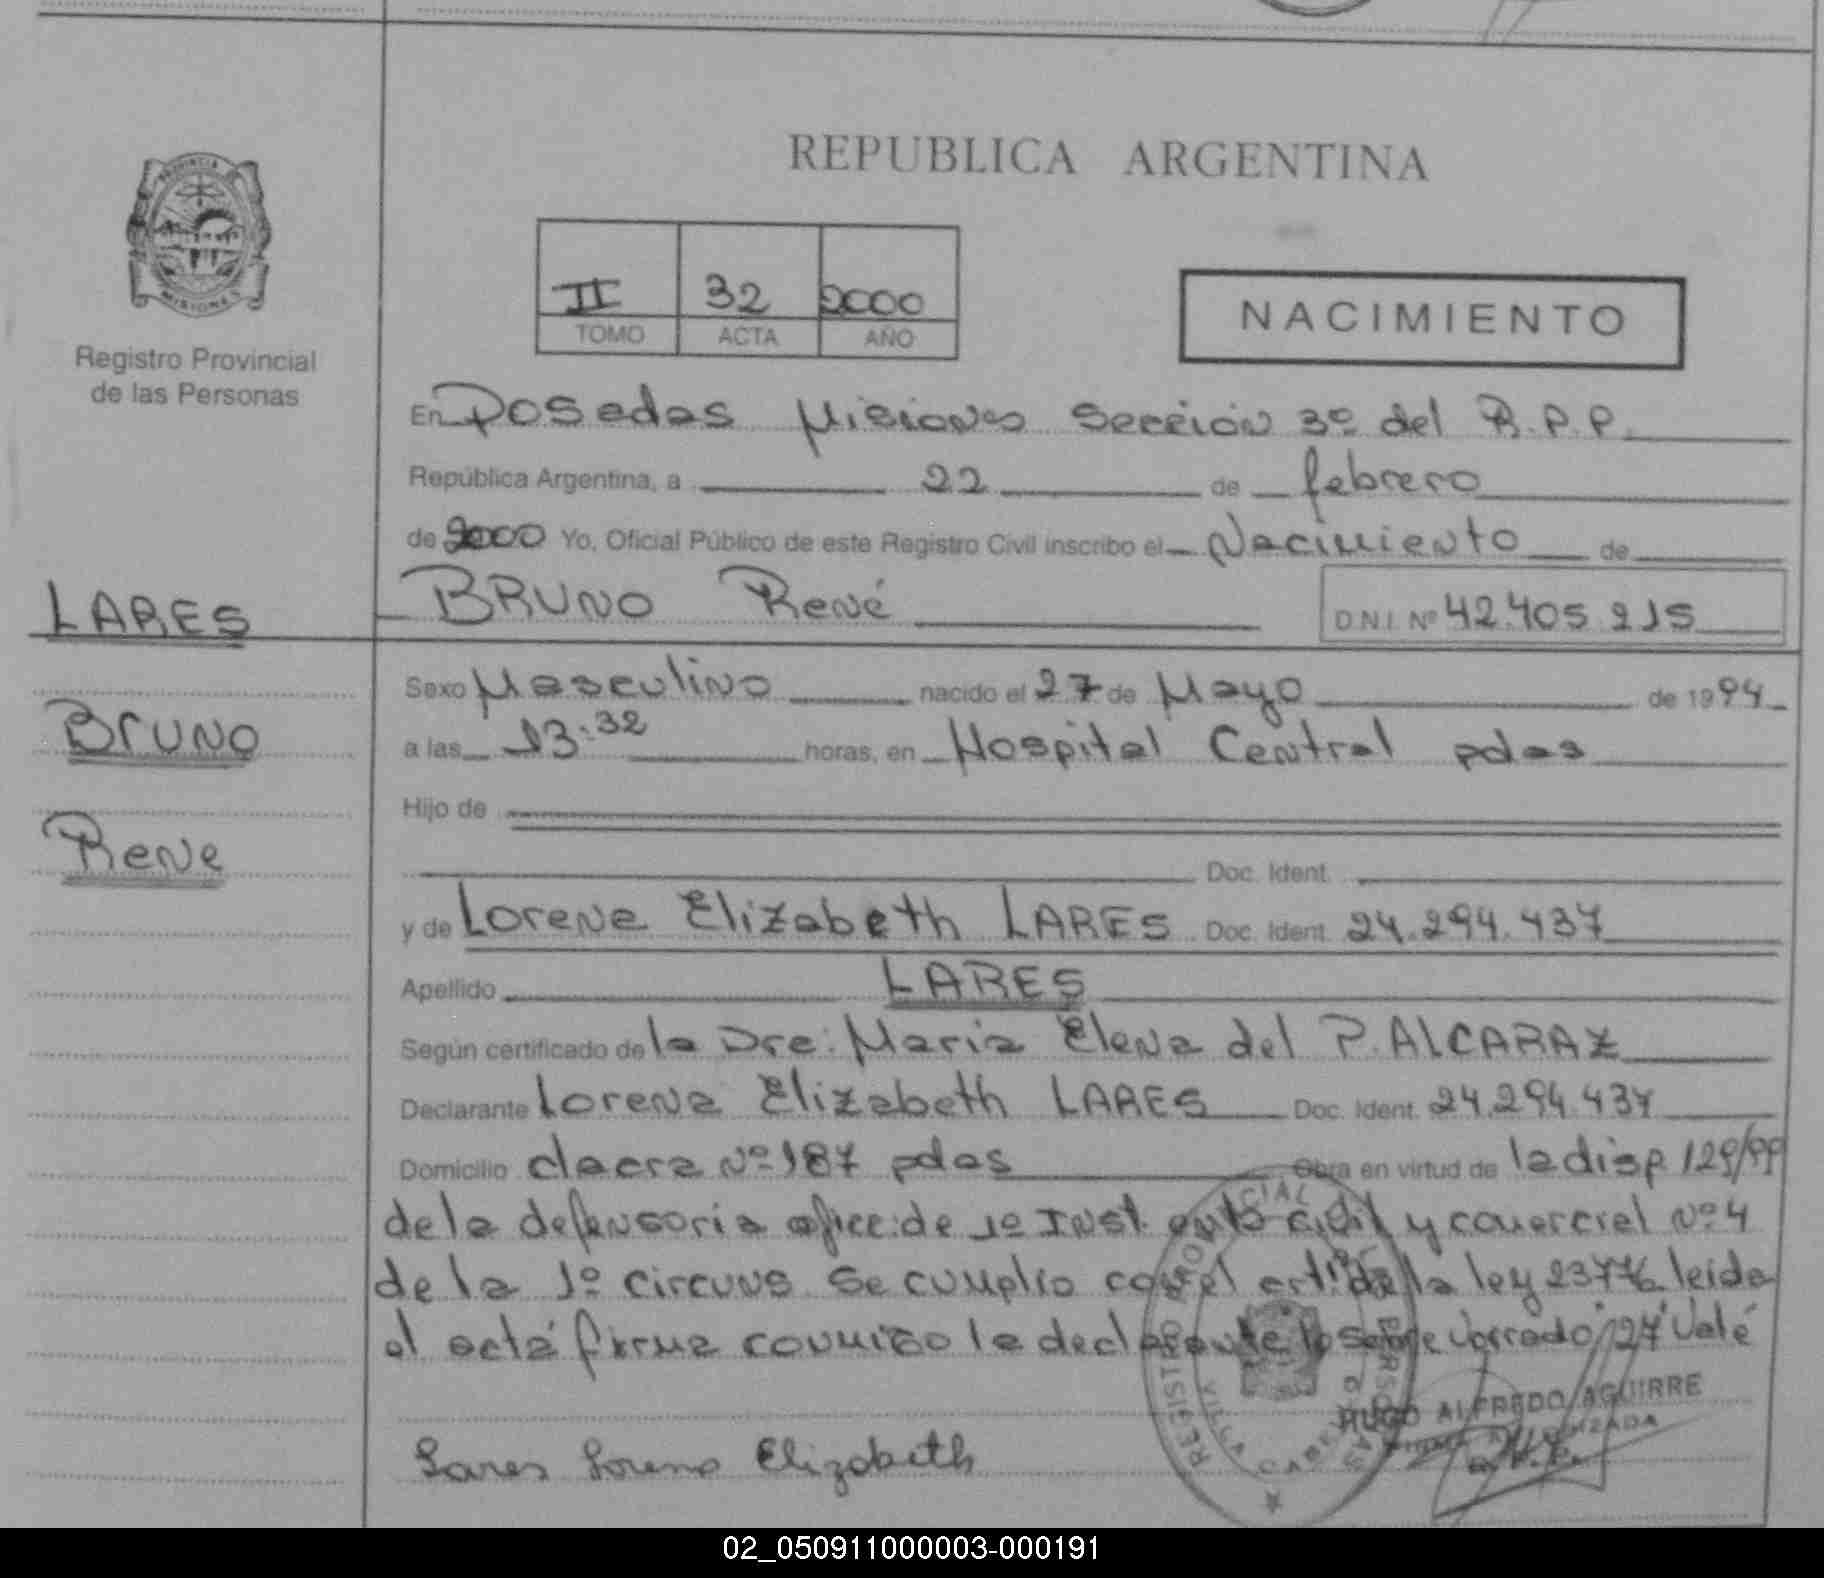 REPUBLICA ARGENTINA
PROVINCIA DE
MISIONES
Registro Provincial
de las Personas
II 32 2000
TOMO ACTA AÑO
NACIMIENTO
En Posadas Misiones Sección 3º del R.P.P.
República Argentina, a 22 de febrero
de 2000 Yo, Oficial Público de este Registro Civil inscribo el Nacimiento de
LARES
BRUNO René D.N.I. Nº 42.405.215
Sexo Masculino nacido el 27 de Mayo de 1994
Bruno
a las 13:32 horas, en Hospital Central pdas
Hijo de
Rene
Doc. Ident.
y de Lorena Elizabeth LARES Doc. Ident. 24.294.437
Apellido LARES
Según certificado de la Dra: Maria Elena del P. ALCARAZ
Declarante Lorena Elizabeth LARES Doc. Ident. 24.294.437
Domicilio chacra Nº 187 pdas Obra en virtud de la disp. 129/99
de la defensoria ofic: de 1º Inst. en lo civil y comercial Nº 4
de la 1º circuns se cumplio con el art. de la ley 23776 leida
el acta firma conmigo la declarante lo sobre borrado "27" Vale
HUGO ALFREDO AGUIRRE
FIRMA AUTORIZADA
Lares Lorena Elizabeth
REGISTRO PROVINCIAL PERSONAS
VILLA CABELLO
02_050911000003-000191